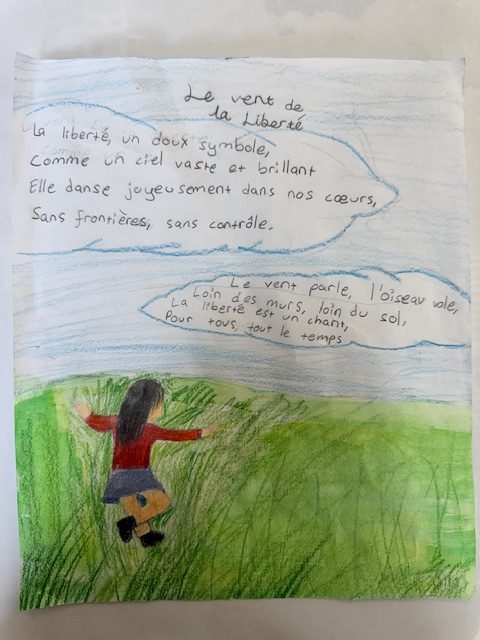 Le vent de
la Liberté
La liberté, un doux symbole,
Comme un ciel vaste et brillant
Elle danse joyeusement dans nos cœurs,
Sans frontières, sans contrôle.
Le vent parle, l'oiseau vole,
Loin des murs, loin du sol,
La liberté est un chant,
Pour tous, tout le temps